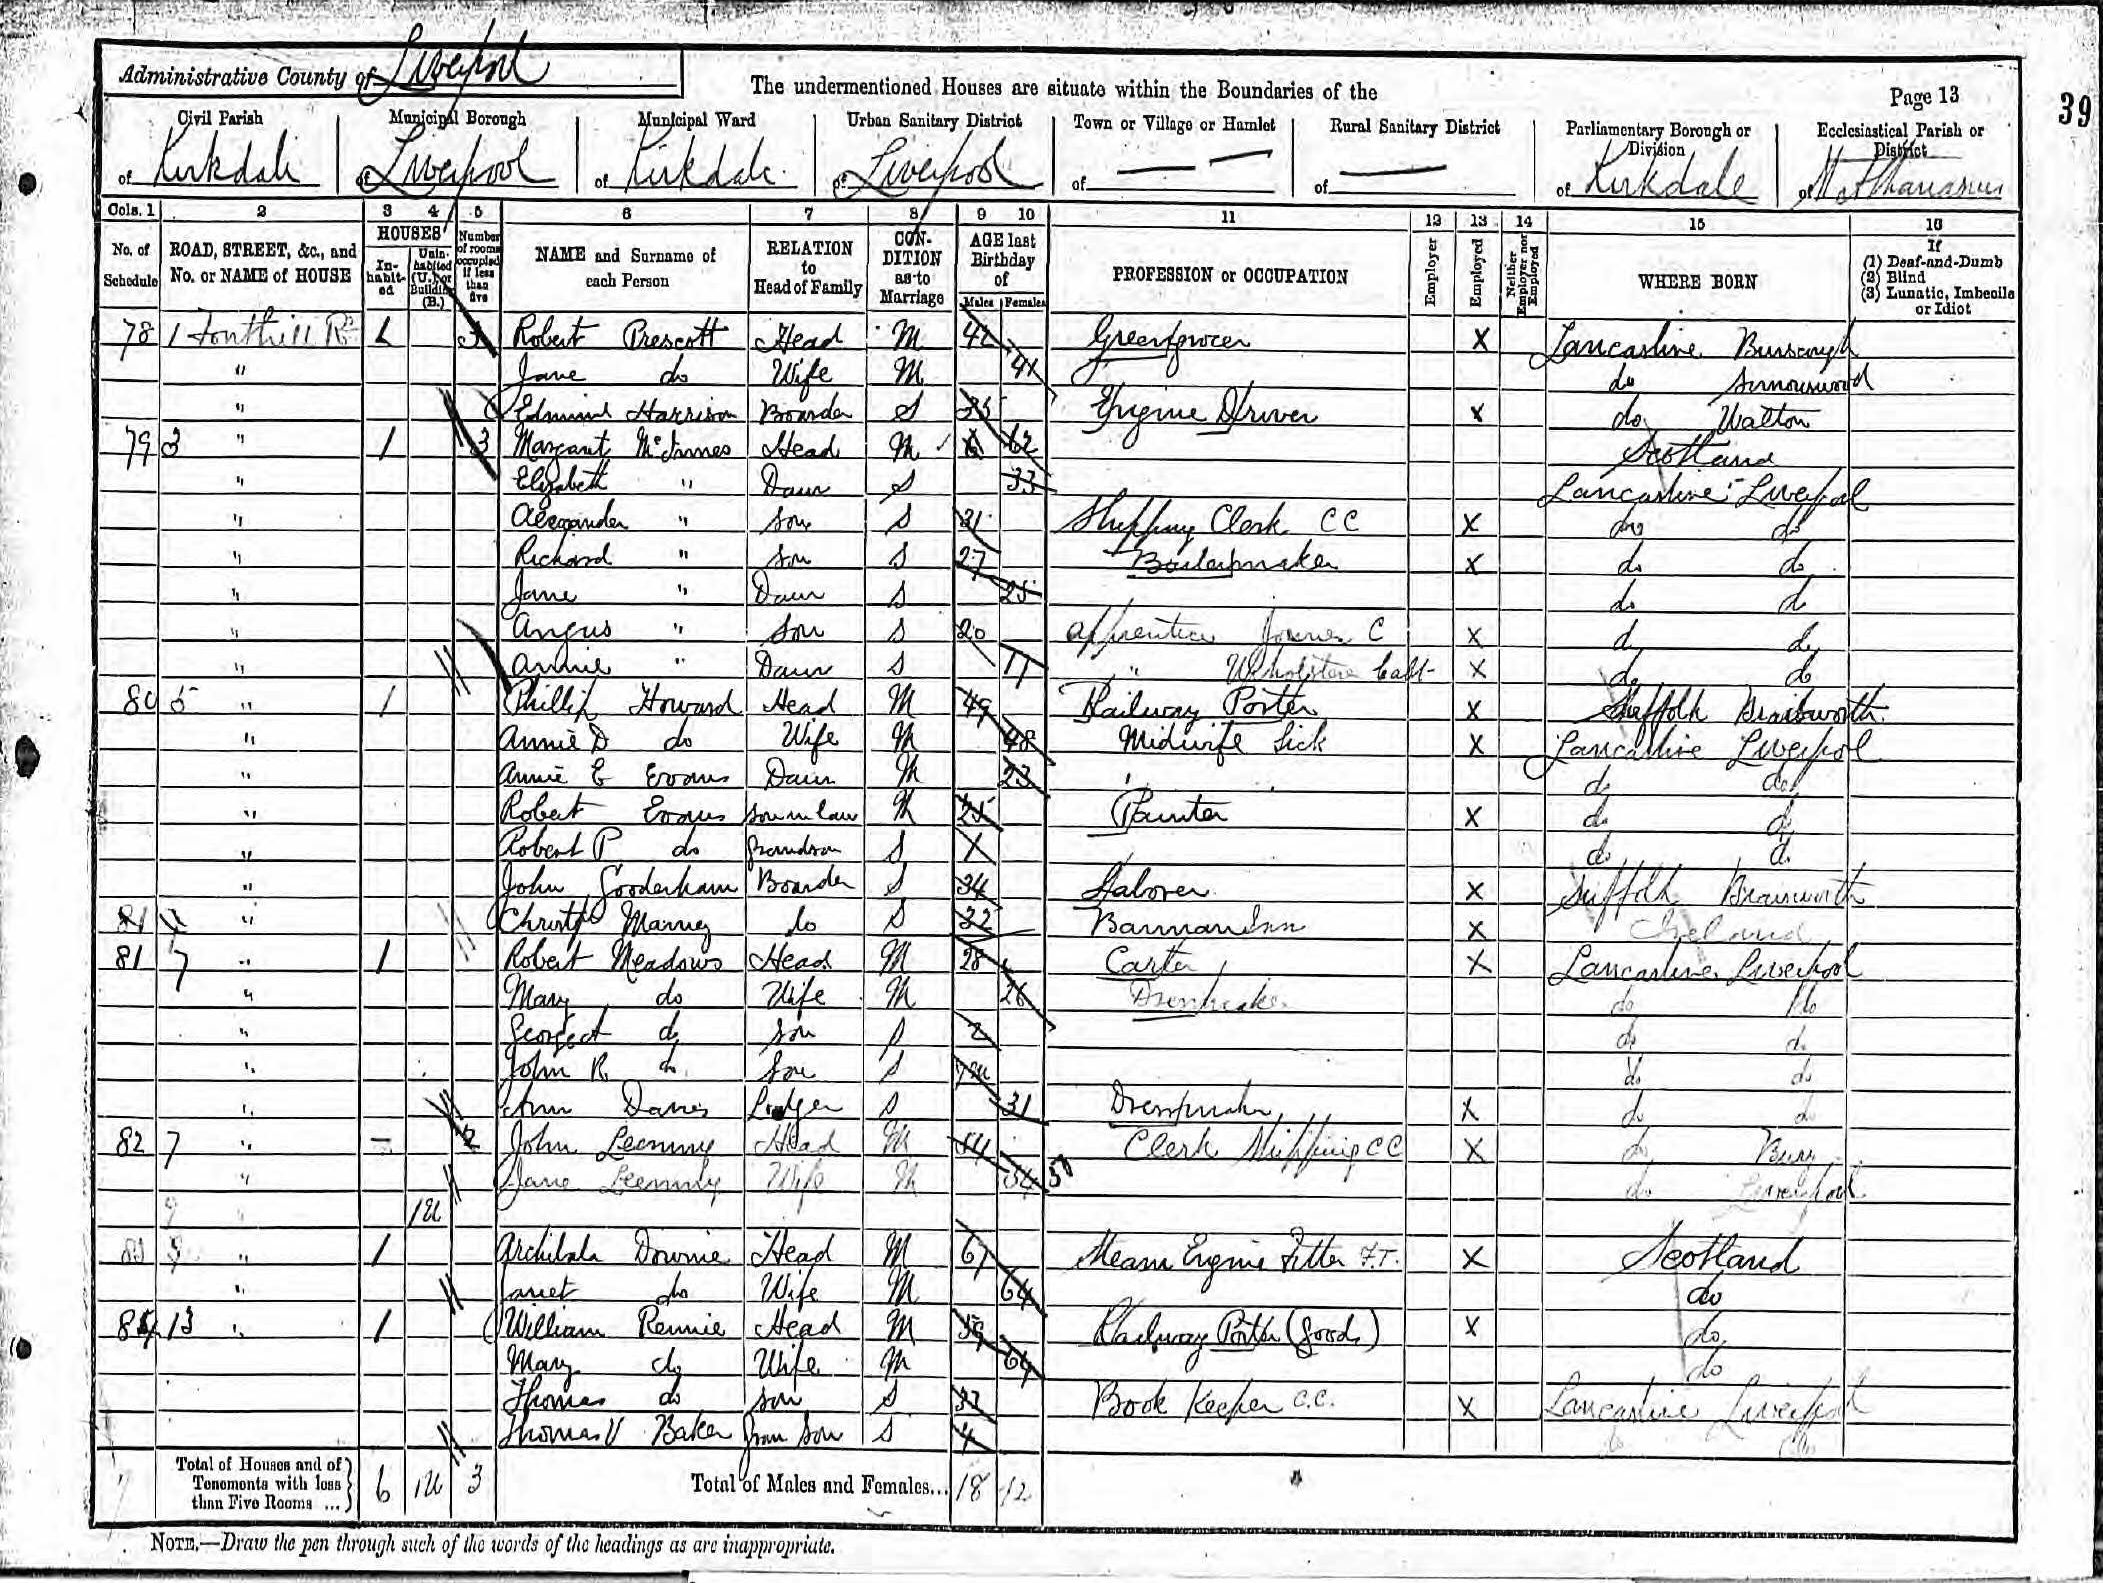 Administrative County of Liverpool
The undermentioned Houses are situate within the Boundaries of the
Page 13
39
Civil Parish of Kirkdale
Municipal Borough of Liverpool
Municipal Ward of Kirkdale
Urban Sanitary District of Liverpool
Town or Village or Hamlet of —
Rural Sanitary District of —
Parliamentary Borough or Division of Kirkdale
Ecclesiastical Parish or District of
Cols. 1 2 3 4 5 6 7 8 9 10 11 12 13 14 15 16
No. of Schedule
ROAD, STREET, &c., and No. or NAME of HOUSE
HOUSES
In-habit-ed
Unin-habited (U.) or Building (B.)
Number of rooms occupied if less than five
NAME and Surname of each Person
RELATION to Head of Family
CON-DITION as to Marriage
AGE last Birthday of
Males Females
PROFESSION or OCCUPATION
Employer
Employed
Neither Employer nor Employed
WHERE BORN
If
(1) Deaf-and-Dumb
(2) Blind
(3) Lunatic, Imbecile or Idiot
78 1 Fonthill Rd 1 3 Robert Prescott Head M 42 Greengrocer X Lancashire Burscough
" Jane do Wife M 41 do
" Edmund Harrison Boarder S 25 Engine Driver X do Walton
79 3 " 1 3 Margaret McInnes Head M 62 Scotland
" Elizabeth " Daur S 33 Lancashire Liverpool
" Alexander " Son S 31 Shipping Clerk CC X do do
" Richard " Son S 27 Boilermaker X do do
" Jane " Daur S 25 do do
" Angus " Son S 20 Apprentice Joiner C X do do
" Annie " Daur S 17 " X do do
80 5 " 1 Phillip Howard Head M 49 Railway Porter X Suffolk
" Annie D do Wife M 48 Midwife Sick X Lancashire Liverpool
" Annie E Evans Daur M 23 do do
" Robert Evans Son in law M 25 Painter X do do
" Robert P do Grandson S 1 do do
" John Gooderham Boarder S 34 Labourer X Suffolk
81 " do S 32 Barman Inn X Ireland
81 7 " 1 Robert Meadows Head M 28 Carter X Lancashire Liverpool
" Mary do Wife M 26 Dressmaker do do
" George A do Son S 2 do do
" John R do Son S do do
" Ann Davies Lodger S 31 Dressmaker X do do
82 7 " – 2 John Leemmy Head M 54 Clerk Shipping CC X do Bury
" Jane Leemmy Wife M 54 do Liverpool
9 " 1U
83 9 " 1 Archibald Downie Head M 61 Steam Engine Fitter F.T. X Scotland
" Janet do Wife M 64 do
84 13 " 1 William Rennie Head M 59 Railway Porter (Goods) X do
Mary do Wife M 64 do
Thomas do Son S 33 Book Keeper C.C. X Lancashire Liverpool
Thomas V Baker Gran Son S 4 do do
Total of Houses and of Tenements with less than Five Rooms ... 6 1U 3
Total of Males and Females... 18 12
NOTE.—Draw the pen through such of the words of the headings as are inappropriate.